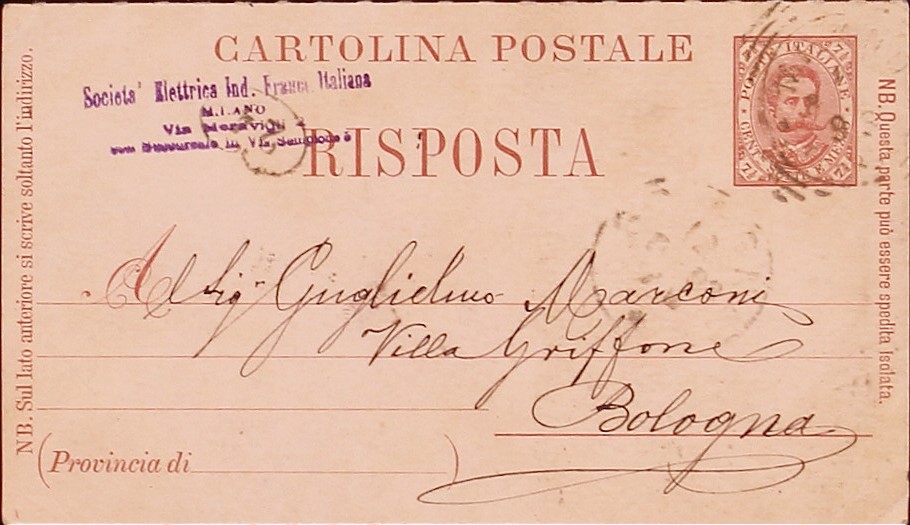 CARTOLINA POSTALE
Societa' Elettrica Ind. Franco Italiana
MILANO
Via Meravigli
con Succursale in Via
RISPOSTA
POSTE ITALIANE
7½ 7½
CENT. SETTE E MEZZO
7½ 7½
Al Sigr. Guglielmo Marconi
Villa Griffone
Bologna
(Provincia di )
NB. Sul lato anteriore si scrive soltanto l'indirizzo.
NB. Questa parte può essere spedita isolata.